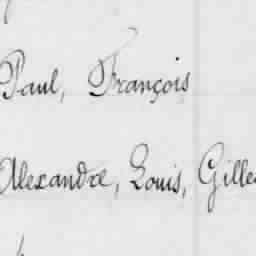 Paul, François
Alexandre, Louis, Gilles